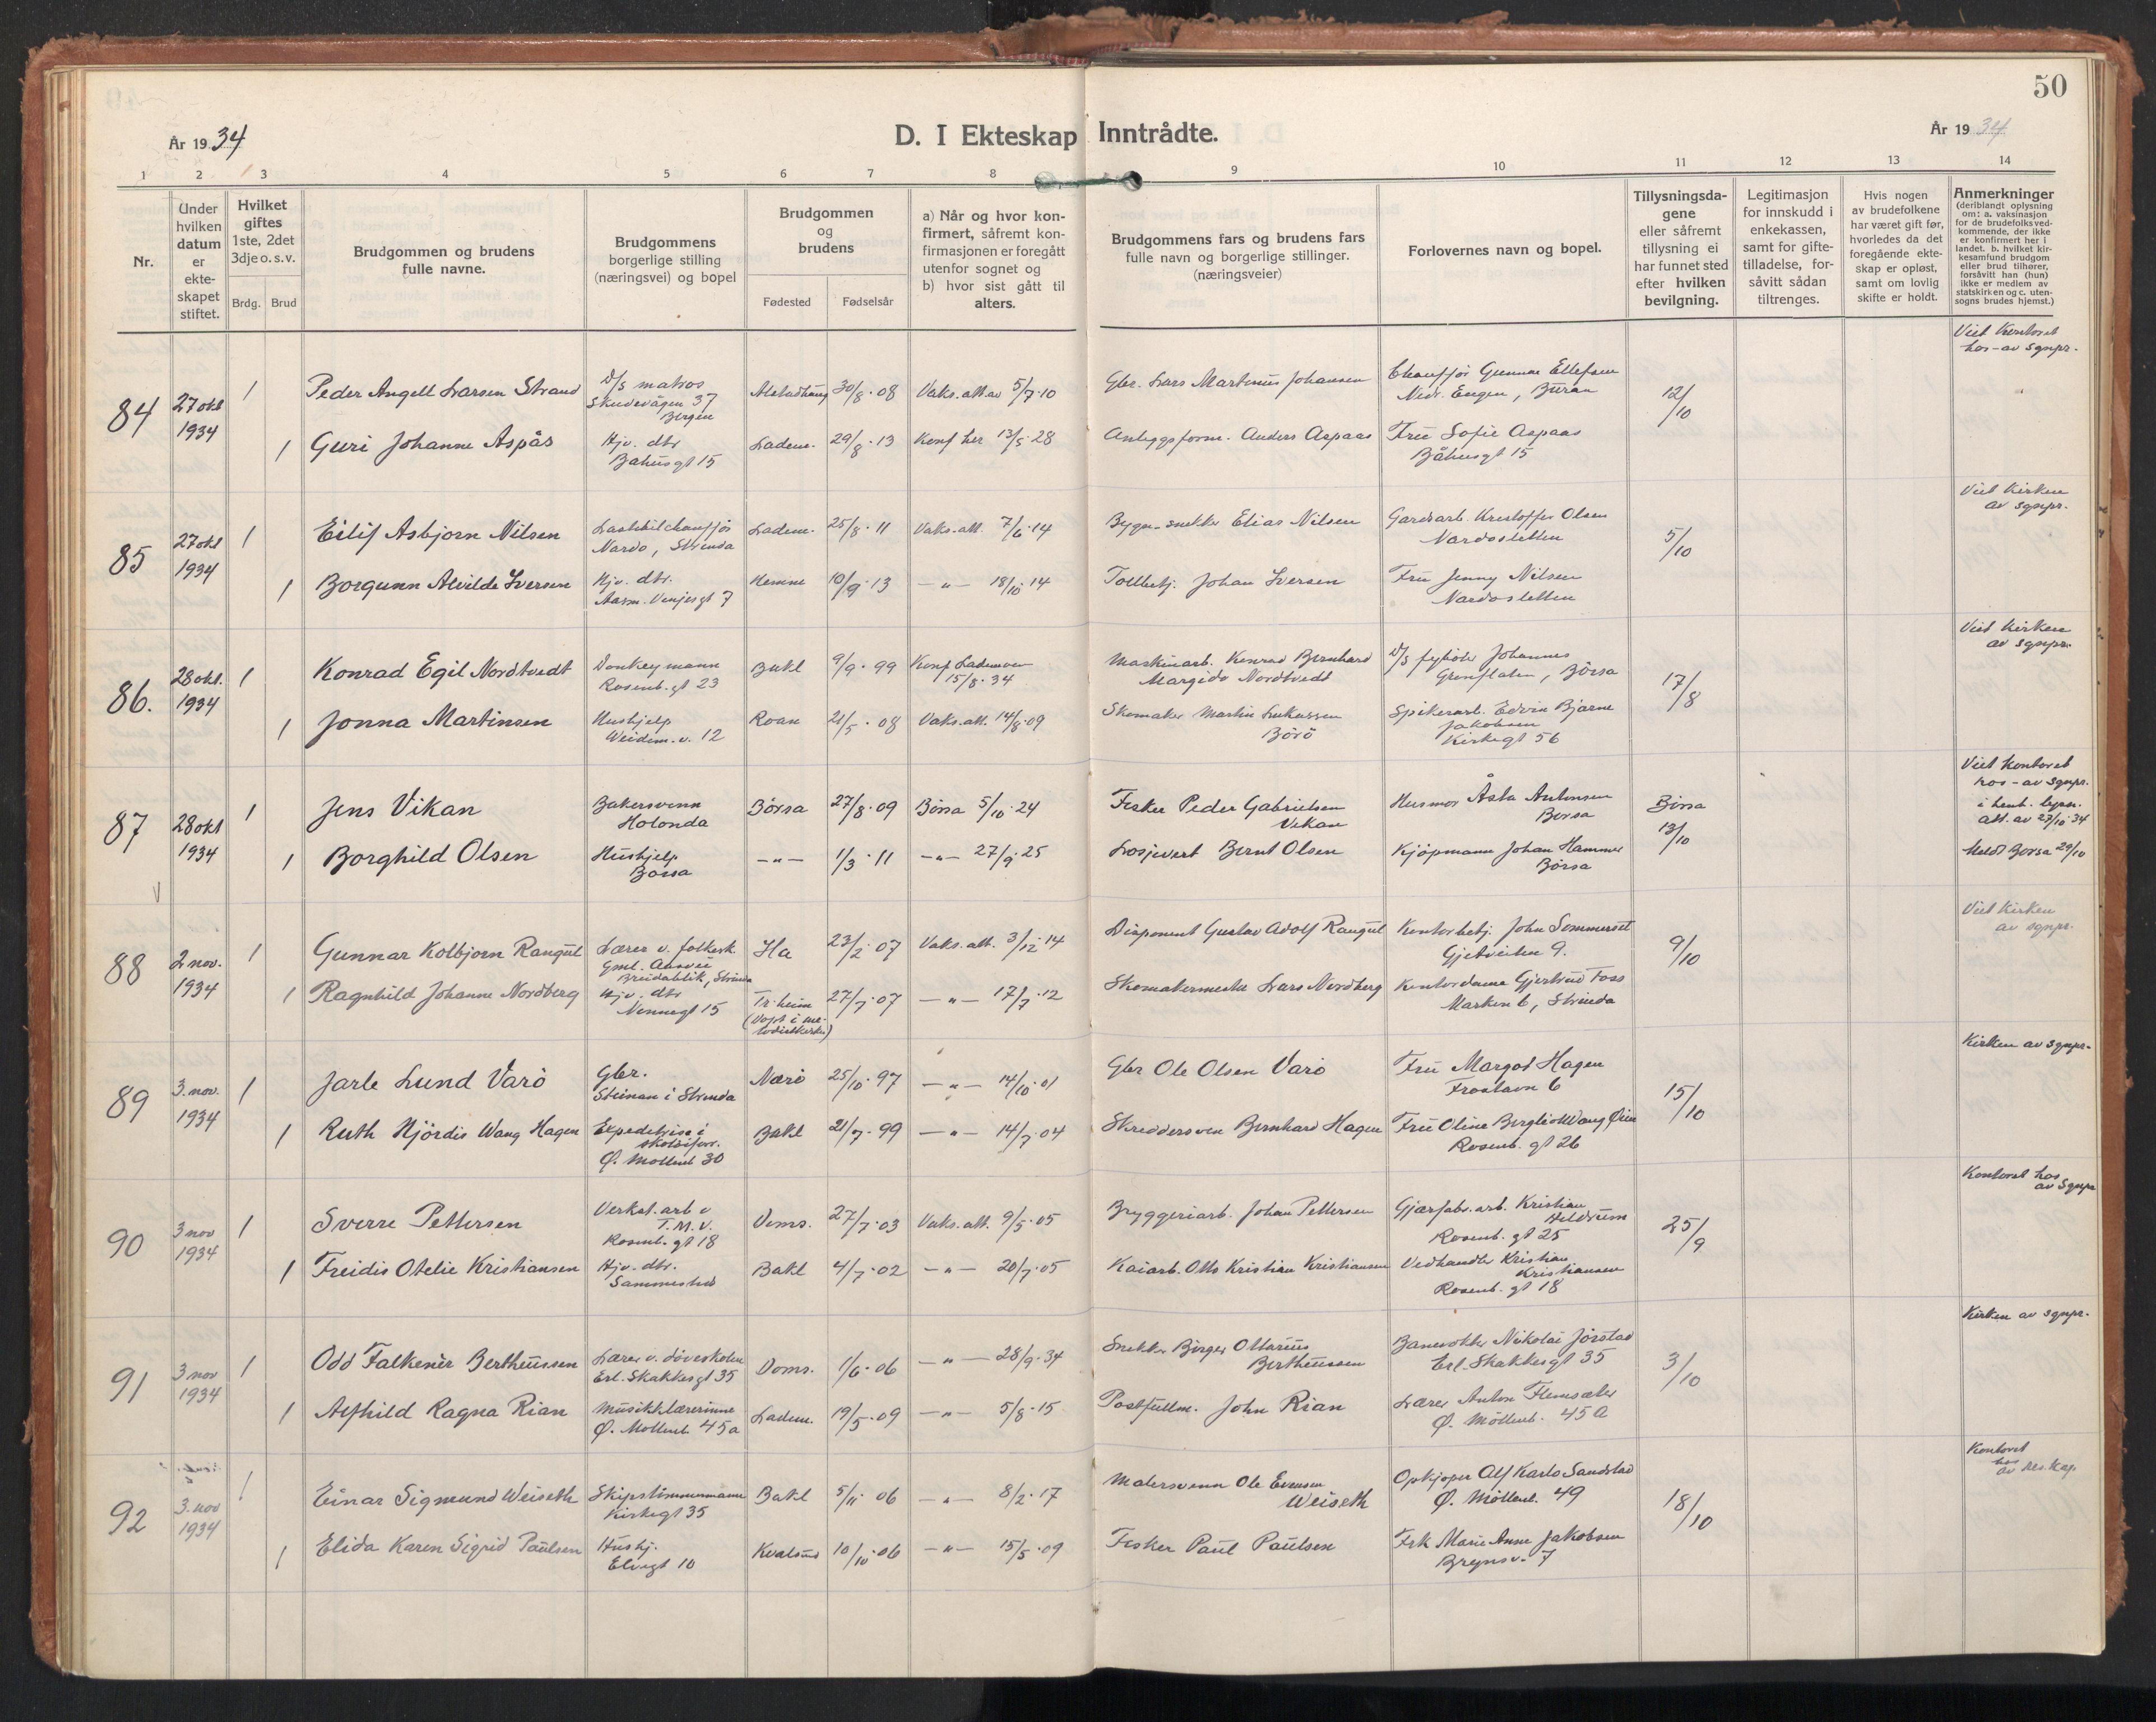 50
År 1934
D. I Ekteskap Inntrådte.
År 1934
1 2 3 4 5 6 7 8 9 10 11 12 13 14
Nr.
Under hvilken datum er ekte-skapet stiftet.
Hvilket giftes 1ste, 2det 3dje o. s. v.
Brdg. Brud
Brudgommen og brudens fulle navne.
Brudgommens borgerlige stilling (næringsvei) og bopel
Brudgommen og brudens
Fødested Fødselsår
a) Når og hvor kon-firmert, såfremt kon-firmasjonen er foregått utenfor sognet og b) hvor sist gått til alters.
Brudgommens fars og brudens fars fulle navn og borgerlige stillinger. (næringsveier)
Forlovernes navn og bopel.
Tillysningsda-gene eller såfremt tillysning ei har funnet sted efter hvilken bevilgning.
Legitimasjon for innskudd i enkekassen, samt for gifte-tilladelse, for-såvitt sådan tiltrenges.
Hvis nogen av brudefolkene har været gift før, hvorledes da det foregående ekte-skap er opløst, samt om lovlig skifte er holdt.
Anmerkninger (deriblandt oplysning om: a. vaksinasjon for de brudefolksved-kommende, der ikke er konfirmert her i landet. b. hvilket kir-kesamfund brudgom eller brud tilhører, forsåvitt han (hun) ikke er medlem av statskirken og c. uten-sogns brudes hjemst.)
84 27 okt 1934 1 Peder Angell Larsen Strand D/s matros Skudevågen 37 Bergen Alstadhaug 30/8·08 Vaks.att.av 5/7·10 Gbr. Lars Martinus Johansen Chauffør Gunnar Ellefsen Nedr. Engen, Buran 12/10 Viet Kontoret hos - av sgnpr.
1 Guri Johanne Aspås Hjv. dtr Bahusgt 15 Ladem. 29/8·13 Konf her 13/5·28 Anleggsform. Anders Aspaas Frü Sofie Aspaas Båhusgt 15
85 27 okt 1934 1 Eilif Asbjørn Nilsen Lastebilchauffør Nardo, Strinda Ladem. 25/8·11 Vaks.att. 7/6·14 Bygn.snekker Elias Nilsen Gardsarb. Kristoffer Olsen Nardosletten 5/10 Viet Kirken av sgnpr.
1 Borgunn Alvilde Iversen Hjv. dtr. Aasm. Vinjesgt 7 Hemne 10/9·13 —"— 18/10·14 Tollbetj. Johan Iversen Frü Jenny Nilsen Nardosletten
86. 28 okt. 1934 1 Konrad Egil Nordtvedt Donkeymann Rosenb.gt 23 Bakl 9/9·99 Konf Lademoen 15/8·34 Maskinarb. Konrad Bernhard Margido Nordtvedt D/s fyrbøter Johannes Grønflaten, Börsa 17/8 Viet Kirken av sgnpr.
1 Jonna Martinsen Hushjelp Weidem.v. 12 Roan 21/5·08 Vaks.att. 14/8·09 Skomaker Martin Lukassen Börö Spikerarb. Edvin Bjarne Jakobsen Kirkegt 56
87 28 okt 1934 1 Jens Vikan Bakersvenn Holonda Börsa 27/8·09 Börsa 5/10·24 Fisker Peder Gabrielsen Vikan Husmor Åsta Antonsen Börsa Börsa 13/10 Viet Kontoret hos - av sgnpr. i henh. lysn. att. av 27/10·34 Meldt Börsa 29/10
1 Borghild Olsen Hushjelp Börsa —"— 1/3·11 —"— 27/9·25 Losjevert Bernt Olsen Kjöpmann Johan Hammer Börsa
88 2 nov. 1934 1 Gunnar Kolbjørn Rangül Lærer v. folkesk. Gml. Aasvei Breidablik, Strinda Ha 23/2·07 Vaks.att. 3/12·14 Disponent Gustav Adolf Rangül Kontorbetj. John Sommerset Gjetveiten 9. 9/10 Viet Kirken av sgnpr.
1 Ragnhild Johanne Nordberg Hjv. dtr Nonnegt 15 Tr.heim (Döpt i me-todistkirken) 27/7·07 —"— 17/7·12 Skomakermester Lars Nordberg Kontordame Gjertrud Foss Marken 6, Strinda
89 3. nov. 1934 1 Jarle Lund Varö Gbr. Steinan i Strinda Nærö 25/10·97 —"— 14/10·01 Gbr Ole Olsen Varö Frü Margot Hagen Frostavn 6 15/10 Kirken av sgnpr.
1 Ruth Hjördis Wang Hagen Expeditrise i skotöiforr. Ø. Møllenb 30 Bakl 21/7·99 —"— 14/7·04 Skreddersven Bernhard Hagen Frü Oline Bergliot Wang Öien Rosenb. gt 26
90 3 nov 1934 1 Sverre Pettersen Verkst.arb v T.M.V. Rosenb. gt 18 Doms. 27/7·03 Vaks.att. 9/5·05 Bryggeriarb. Johan Pettersen Gjærfabr.arb. Kristian Hildrüm Rosenb. gt 25 25/9 Kontoret hos av sgnpr
1 Freidis Otelie Kristiansen Hjv. dtr. Sammested Bakl 4/7·02 —"— 20/7·05 Kaiarb. Otto Kristian Kristiansen Vedhandler Kristian Kristiansen Rosenb. gt 18
91 3 nov 1934 1 Odd Falkenér Bertheüssen Lærer v. døveskolen Erl. Skakkesgt 35 Doms. 1/6·06 —"— 28/9·34 Snekker Birger Ottarius Bertheüssen Banevokter Nikolai Jörstad Erl. Skakkesgt 35 3/10 Kirken av sgnpr.
1 Alfhild Ragna Rian Müsikklærerinne Ø. Mollenb. 45a Ladem. 19/5·09 —"— 5/8·15 Postfullm. John Rian Lærer Anton Flemsæter Ø. Möllenb. 45a
92 3. nov 1934 1 Einar Sigmund Weiseth Skipstimmermann Kirkegt 35 Bakl 5/11·06 —"— 8/2·17 Malersvenn Ole Evensen Weiseth Opkjöper Alf Karlo Sandstad Ø. Möllenb. 49 18/10 Kontoret hos av res. kap.
1 Elida Karen Sigrid Paülsen Hushj. Elvegt 10 Kvalsund 10/10·06 —"— 15/5·09 Fisker Paül Paülsen Frk Marie Anne Jakobsen Brynsv. 7